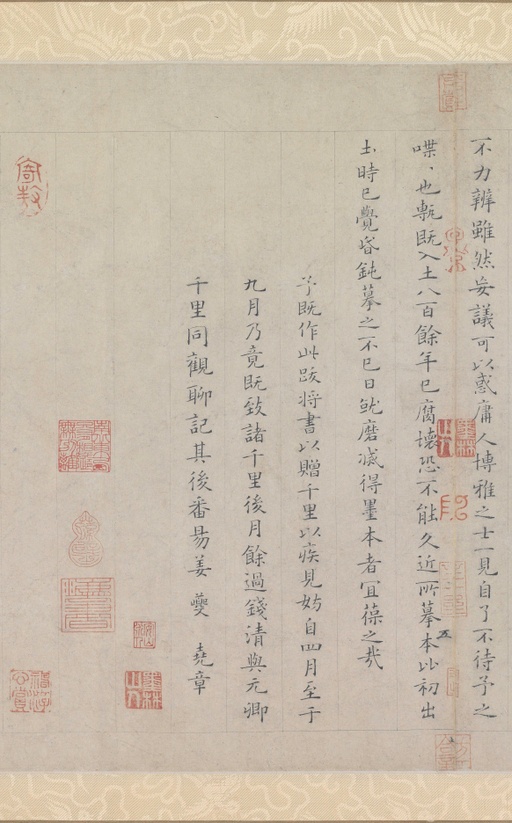 不力辨雖然妄議可以惑庸人博雅之士一見自了不待予之
喋、也甎既入土八百餘年已腐壞恐不能久近所摹本比初出
土時已覺昏鈍摹之不已日就磨滅得墨本者宜葆之哉
予既作此跋將書以贈千里以疾見妨自四月至于
九月乃竟既致諸千里後月餘過錢清與元卿
千里同觀聊記其後番昜姜夔堯章